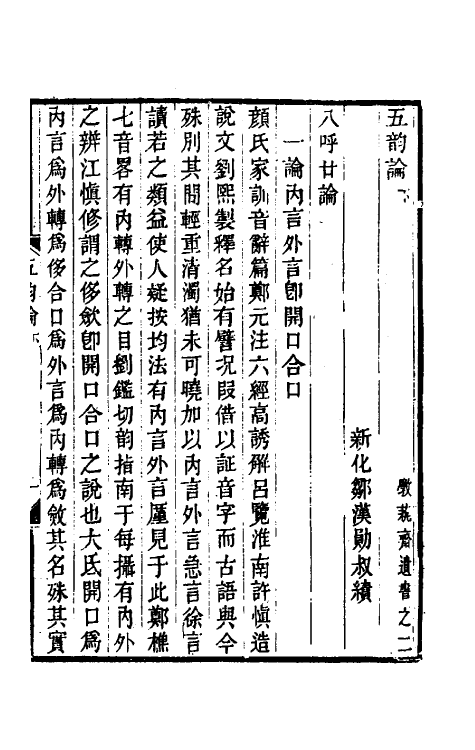 五韵論下
斅蓺齋遺書之二
新化鄒漢勛叔績
八呼廿論
一論内言外言卽開口合口
顏氏家訓音辭篇鄭元注六經高誘解呂覽淮南許愼造
說文劉熙製釋名始有譬況叚借以証音字而古語與今
殊別其間輕重清濁猶未可曉加以内言外言急言徐言
讀若之類益使人疑按均法有内言外言厪見于此鄭樵
七音畧有内轉外轉之目劉鑑切韵指南于每攝有内外
之辨江愼修謂之侈歛卽開口合口之說也大氐開口爲
内言爲外轉爲侈合口爲外言爲内轉爲斂其名殊其實
五韵論下
一